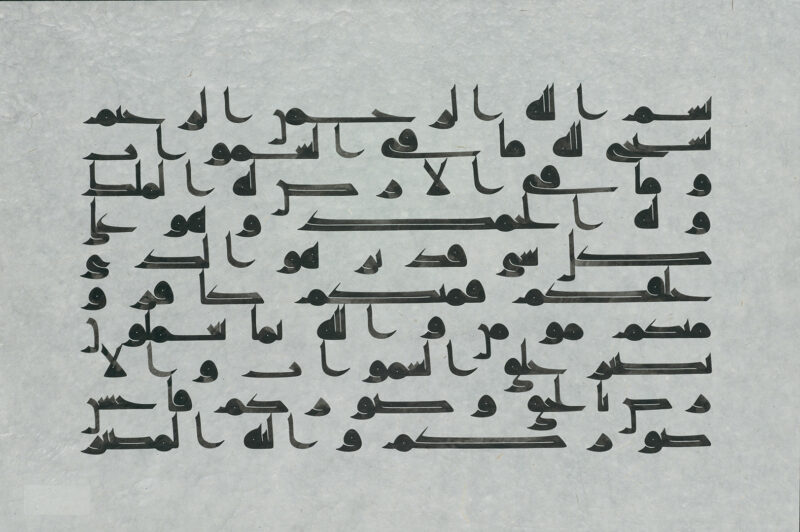 بسم الله الرحمن الرحيم
يسبح لله ما في السموات
وما في الارض له الملك
وله الحمد وهو على
كل شي قدير هو الذي
خلقكم فمنكم كافر و
منكم مومن والله بما تعملون
بصير خلق السموات والا
رض بالحق وصوركم فاحسن
صوركم واليه المصير